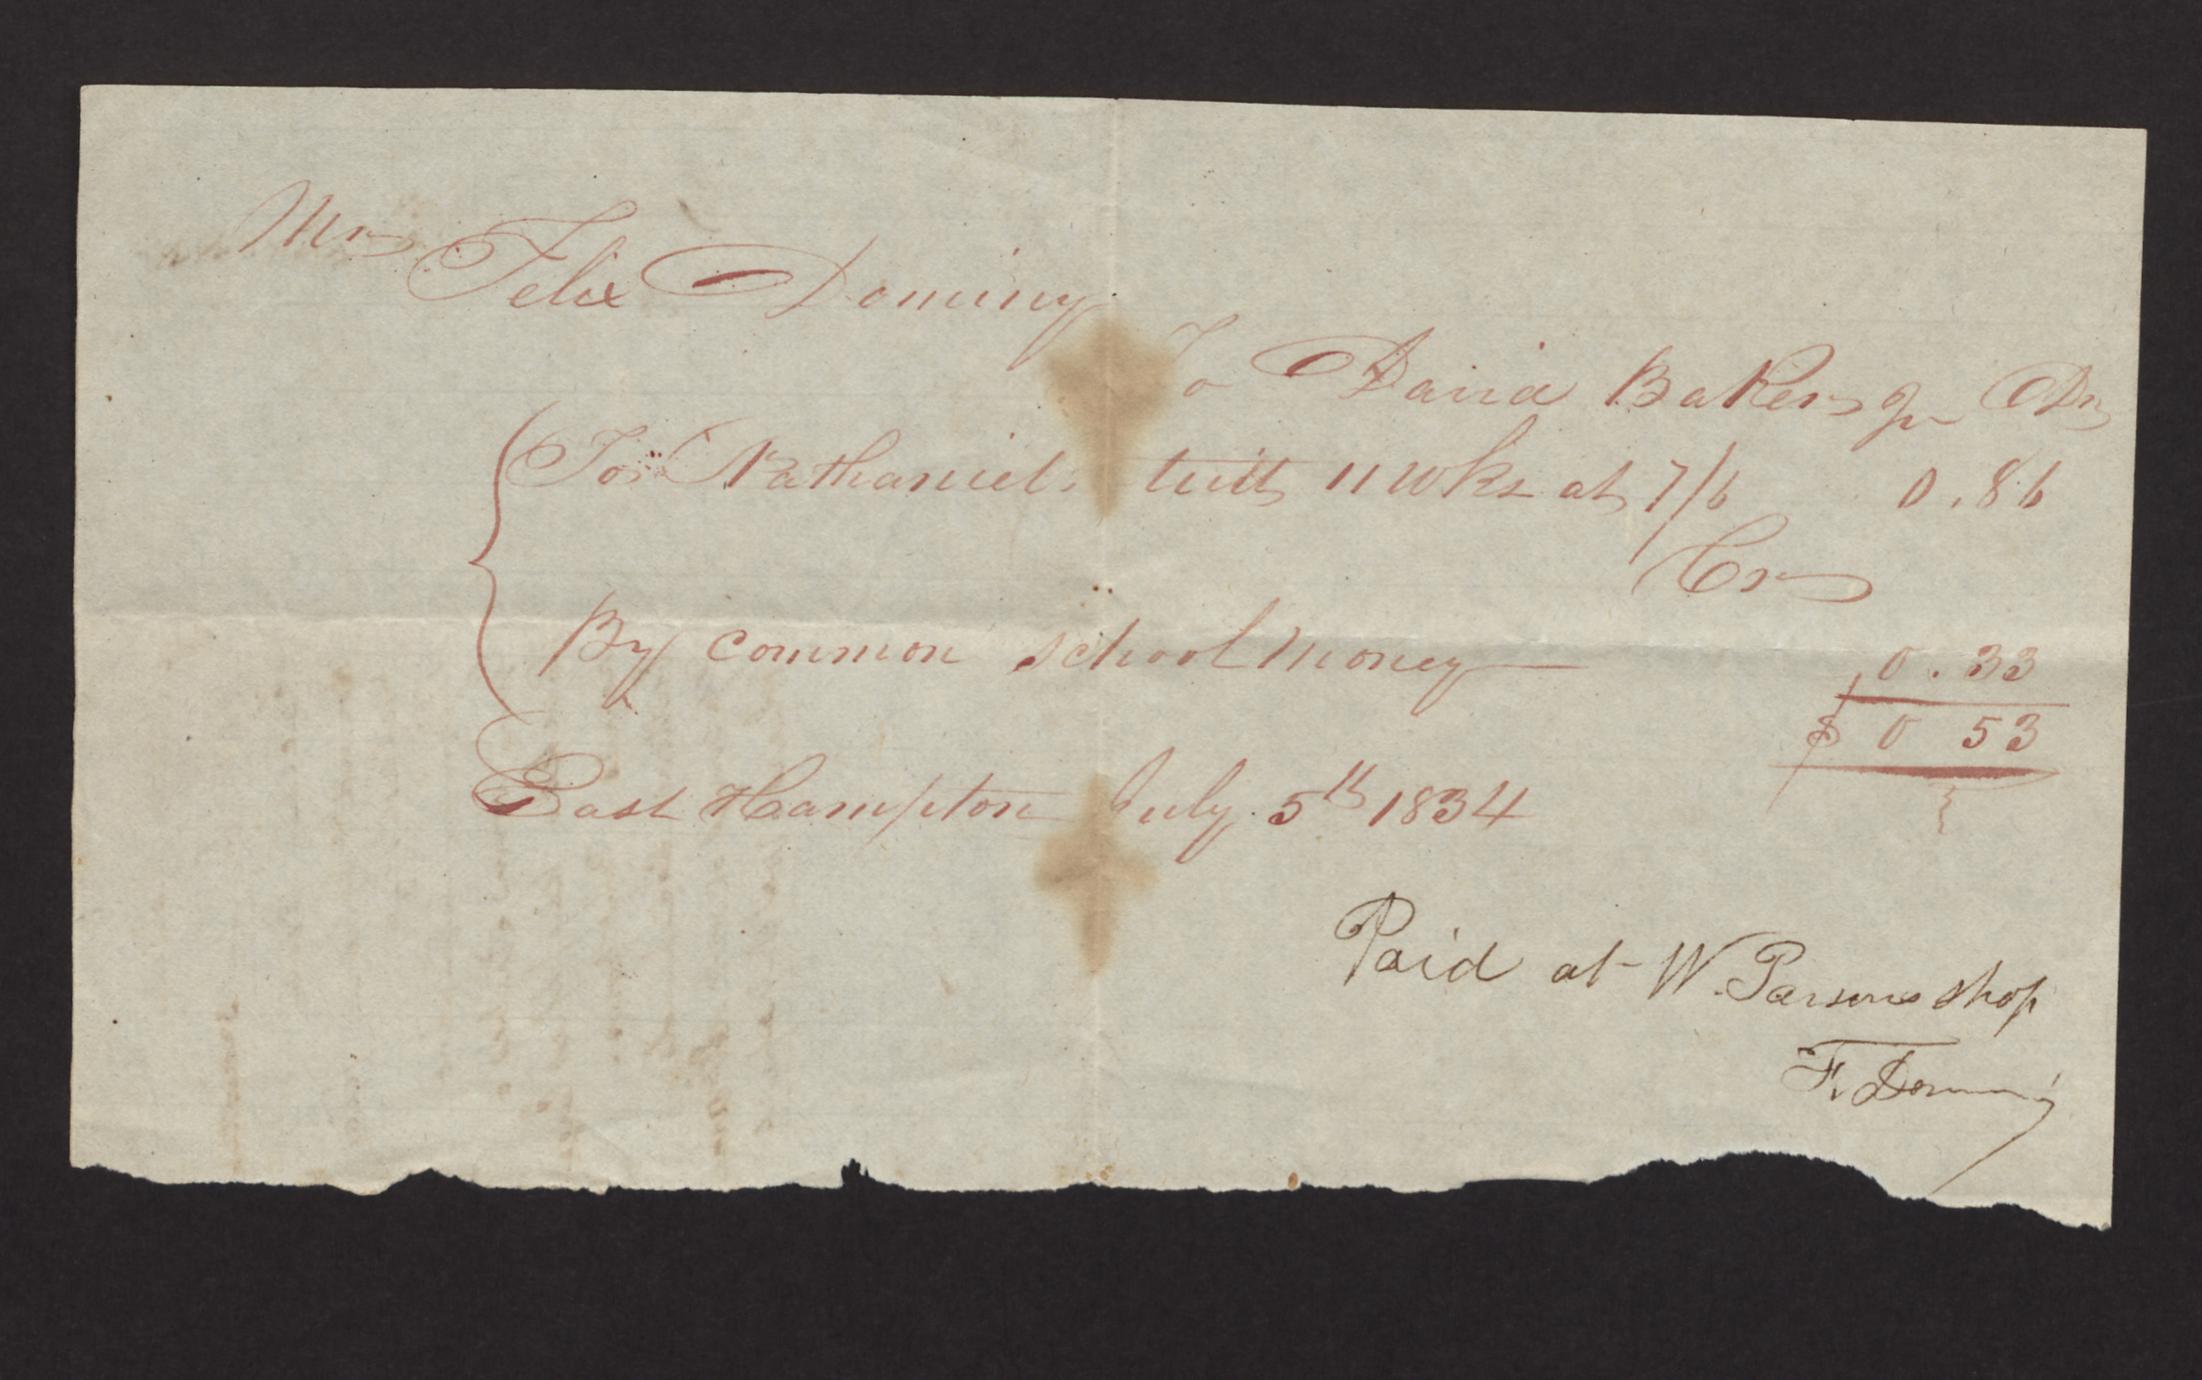 Mr Felix Dominy
To David Baker Jr Dr
To Nathaniel tuit 11 wks at 7/6 0.86
Cr
By common school money 0.33
$ 0 53
East Hampton July 5th 1834
Paid at W. Parsons shop
F. Dominy